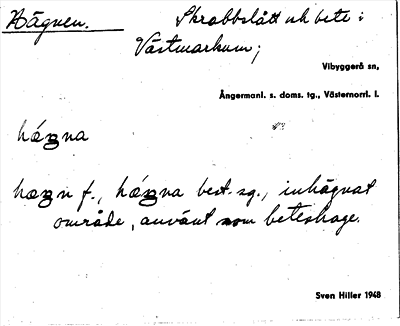 Hägnen.
Skrabbslått och bete i
Västmarkum;
Vibyggerå sn,
Ångermanl. s. doms. tg., Västernorrl. l.
hǽgna
hægn f., hǽgna best. sg., inhägnat
område, använt som beteshage.
Sven Hiller 1948